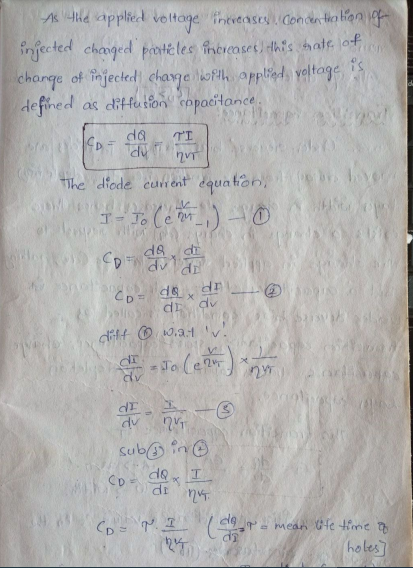 As the applied voltage increases. Concentration of
injected charged particles increases. this rate of
change of injected charge with applied voltage is
defined as diffusion capacitance.
C_D = dQ/dv = τI/ηV_T
The diode current equation.
I = I₀ (e^(V/ηV_T) - 1) — ①
C_D = dQ/dv × dI/dI
C_D = dQ/dI × dI/dv — ②
diff ① w.r.t 'v'.
dI/dv = I₀ (e^(V/ηV_T)) × 1/ηV_T
dI/dv = I/ηV_T — ③
sub ③ in ②
C_D = dQ/dI × I/ηV_T
C_D = τ. I/ηV_T (dQ/dI = τ = mean life time of
holes]